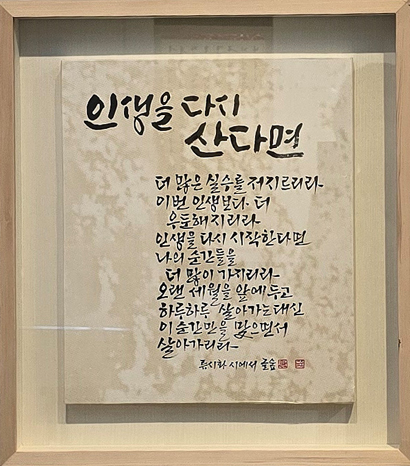 인생을 다시
산다면
더 많은 실수를 저지르리라
이번 인생보다 더
우둔해지리라
인생을 다시 시작한다면
나의 순간들을
더 많이 가지리라
오랜 세월을 앞에 두고
하루하루 살아가는 대신
이 순간만을 맞으면서
살아가리라
류시화 시에서 글숨